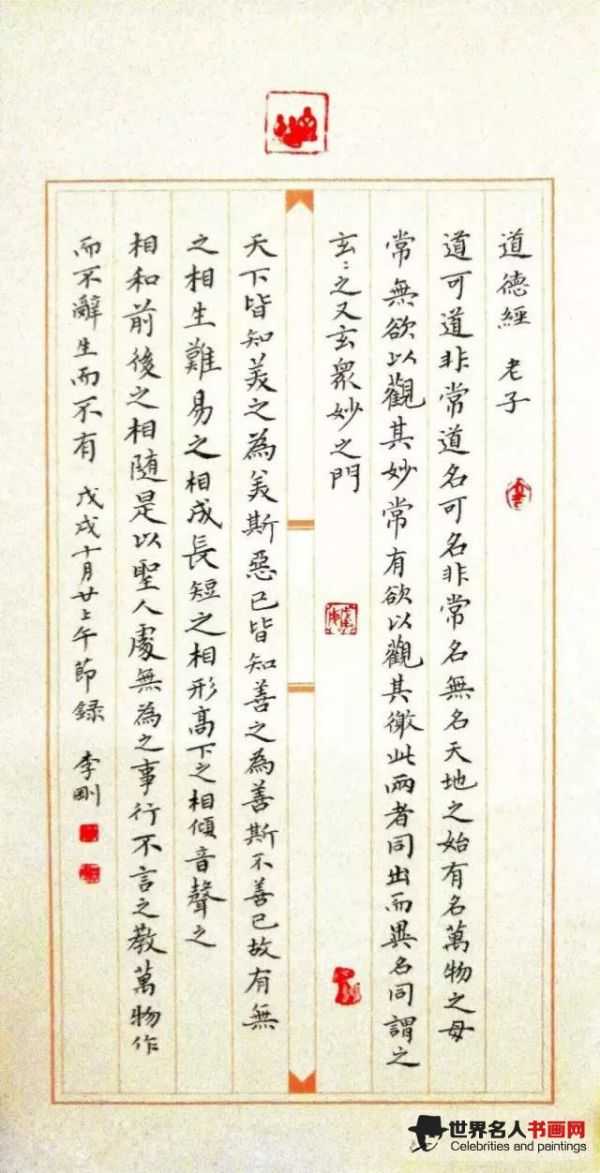 道德經 老子
道可道非常道名可名非常名無名天地之始有名萬物之母
常無欲以觀其妙常有欲以觀其徼此兩者同出而異名同謂之
玄〻之又玄眾妙之門
天下皆知美之為美斯惡已皆知善之為善斯不善已故有無
之相生難易之相成長短之相形高下之相傾音聲之
相和前後之相隨是以聖人處無為之事行不言之教萬物作
而不辭生而不有 戊戌十月廿上午節録 李剛
世界名人书画网
Celebrities and paintings